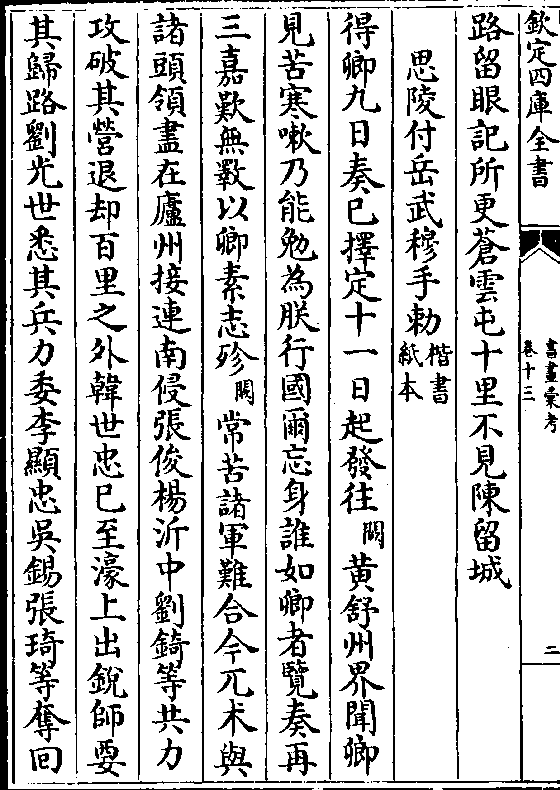 欽定四庫全書
書畫彙考
卷十三
二
路留眼記所更蒼雲屯十里不見陳留城
思陵付岳武穆手勅楷書紙本
得卿九日奏已擇定十一日起發往闕黃舒州界聞卿
見苦寒嗽乃能勉為朕行國爾忘身誰如卿者覽奏再
三嘉歎無斁以卿素志殄闕常苦諸軍難合今兀术與
諸頭領盡在廬州接連南侵張俊楊沂中劉錡等共力
攻破其營退却百里之外韓世忠已至濠上出銳師要
其歸路劉光世悉其兵力委李顯忠吳錫張琦等奪回